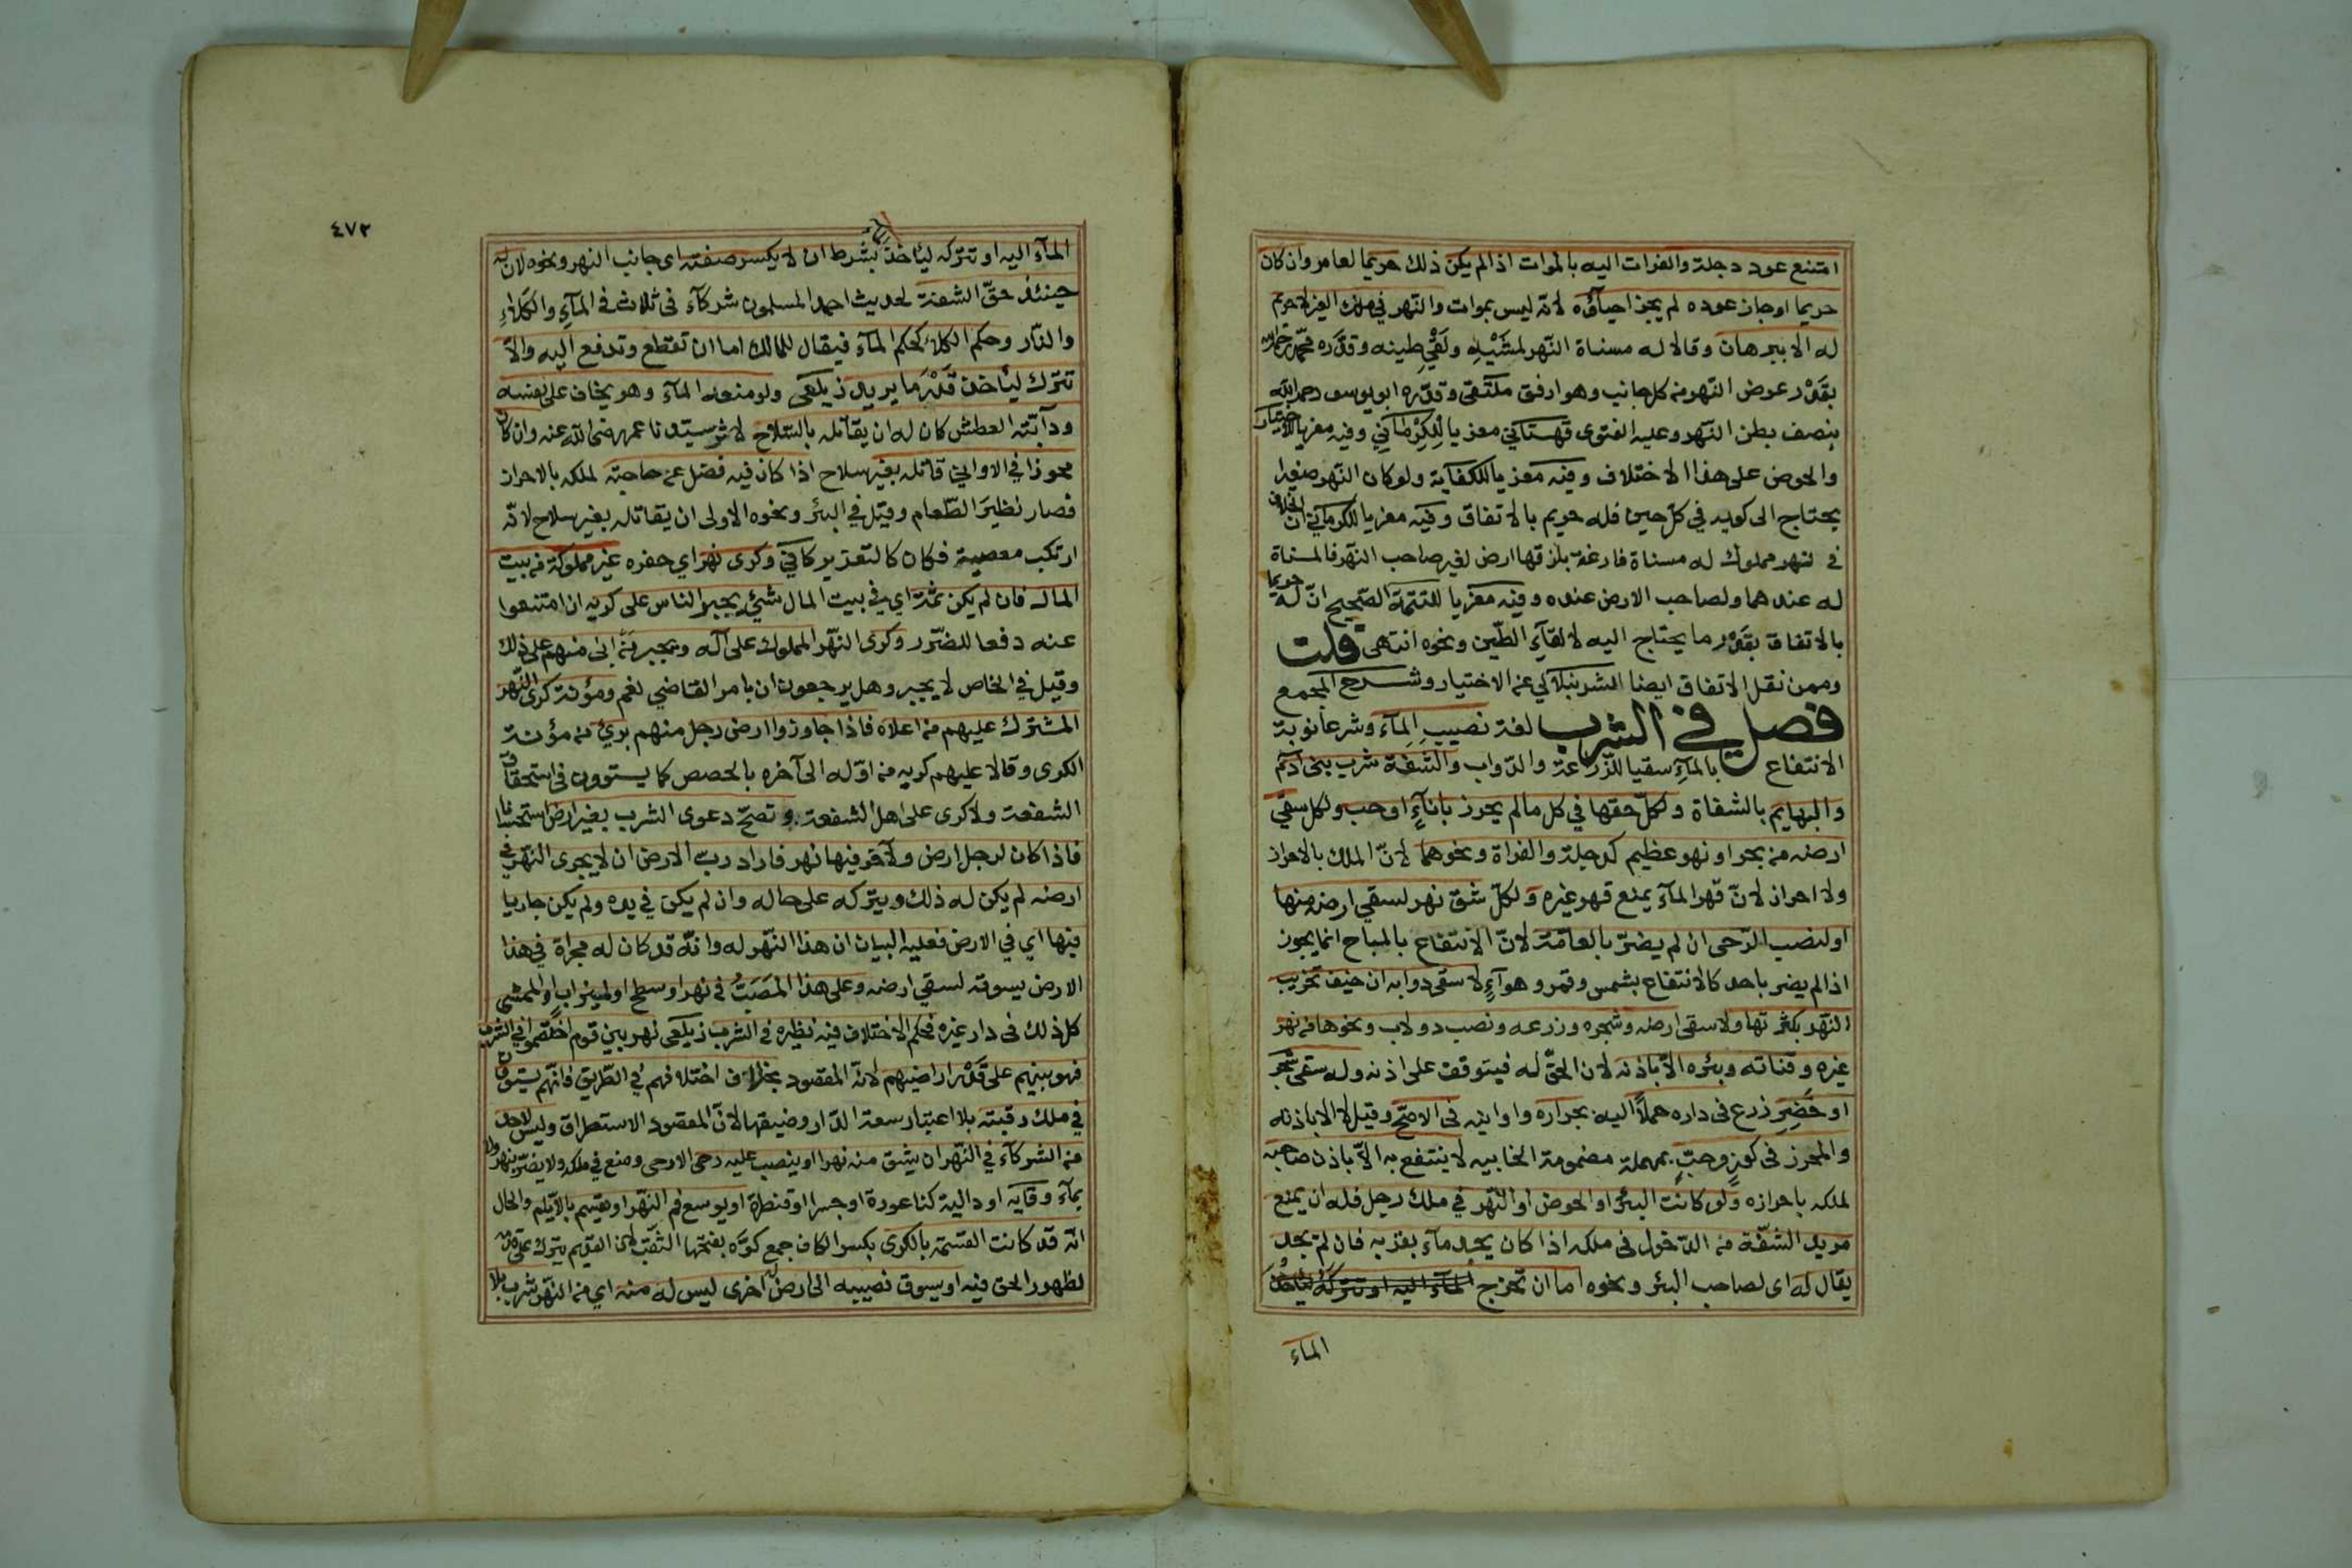 امتنع عود دجلة والفرات اليه بالموات اذا لم يكن ذلك حريما لعامر وان كان
حريما او جاز عوده لم يجز احياؤه لانه ليس بموات والنهر في ملك الغير لا حريم
له الا ببرهان وقالا له مسناة النهر لمشيه ولقي طينه وقدره محمد رحمه الله
بقدر عرض النهر من كل جانب وهو ارفق ملتقى وقدره ابو يوسف رحمه الله
بنصف بطن النهر وعليه الفتوى قهستاني معزيا للكرماني وفيه معزيا للاختيار
والحوض على هذا الاختلاف وفيه معزيا للكفاية ولو كان النهر صغيرا
يحتاج الى كريه في كل حين فله حريم بالاتفاق وفيه معزيا للكرماني ان الخلاف
في نهر مملوك له مسناة فارغة بلزقها ارض لغير صاحب النهر فالمسناة
له عندهما ولصاحب الارض عنده وفيه معزيا للتتمة الصحيح ان له حريما
بالاتفاق بقدر ما يحتاج اليه لالقاء الطين ونحوه انتهى قلت
وممن نقل الاتفاق ايضا الشرنبلالي عن الاختيار وشرح المجمع
فصل في الشرب لغة نصيب الماء وشرعا نوبة
الانتفاع بالماء سقيا للزراعة والدواب والشفة شرب بنى آدم
والبهايم بالشفاة ولكل حقها في كل ما لم يحرز باناء او حب ولكل سقي
ارضه من بحر او نهر عظيم كدجلة والفراة ونحوهما لان الملك بالاحراز
ولا احراز لان قهر الماء يمنع قهر غيره ولكل شق نهر لسقي ارضه منها
او لنصب الرحى ان لم يضر بالعامة لان الانتفاع بالمباح انما يجوز
اذا لم يضر باحد كالانتفاع بشمس وقمر وهواء لا سقى دوابه ان خيف تخريب
النهر بكثرتها ولا سقى ارضه وشجره وزرعه ونصب دولاب ونحوها من نهر
غيره وقناته وبئره الا باذنه لان الحق له فيتوقف على اذنه وله سقى شجر
او خضر زرع في داره حملا اليه بجراره واوانيه فى الاصح وقيل لا الا باذنه
والمحرز فى كوز وحب بمهملة مضمومة الخابيه لا ينتفع به الا باذن صاحبه
لملكه باحرازه ولو كانت البئر او الحوض او النهر في ملك رجل فله ان يمنع
مريد الشفة من الدخول فى ملكه اذا كان يجد ماء بقربه فان لم يجد
يقال له اى لصاحب البئر ونحوه اما ان تخرج الماء اليه او تتركه ليأخذ
الماء
٤٧٢
الماء اليه او تتركه ليأخذ بشرط ان لا يكسر ضفته اى جانب النهر ونحوه لان له
حينئذ حق الشفة لحديث احمد المسلمون شركاء فى ثلاث في الماء والكلاء
والنار وحكم الكلاء كحكم الماء فيقال للمالك اما ان تقطع وتدفع اليه والا
تترك ليأخذ قدر ما يريد زيلعى ولو منعه الماء وهو يخاف على نفسه
ودابته العطش كان له ان يقاتله بالسلاح لاثر سيدنا عمر رضى الله عنه وان كان
محرزا في الاواني قاتله بغير سلاح اذا كان فيه فضل عن حاجته لملكه بالاحراز
فصار نظير الطعام وقيل في البئر ونحوه الاولى ان يقاتله بغير سلاح لانه
ارتكب معصية فكان كالتعزير كافي وكرى نهر اي حفره غير مملوك من بيت
المال فان لم يكن ثمة اي في بيت المال شئ يجبر الناس على كريه ان امتنعوا
عنه دفعا للضرر وكرى النهر المملوك على اهله ويجبر من ابى منهم على ذلك
وقيل في الخاص لا يجبر وهل يرجعون ان بامر القاضي نعم ومؤنة كرى النهر
المشترك عليهم من اعلاه فاذا جاوزوا ارض رجل منهم برئ من مؤنة
الكرى وقالا عليهم كريه من اوله الى آخره بالحصص كما يستوون فى استحقاق
الشفعة ولا كرى على اهل الشفعة وتصح دعوى الشرب بغير ارض استحسانا
فاذا كان لرجل ارض ولآخر فيها نهر فاراد رب الارض ان لا يجرى النهر في
ارضه لم يكن له ذلك ويتركه على حاله وان لم يكن في يده ولم يكن جاريا
فيها اي في الارض فعليه البيان ان هذا النهر له وانه قد كان له مجراة في هذا
الارض يسوقه لسقي ارضه وعلى هذا المصب في نهر او سطح او الميزاب او الممشى
كل ذلك فى دار غيره فحكم الاختلاف فيه نظيره في الشرب زيلعى نهر بين قوم اختصموا في الشرب
فهو بينهم على قدر اراضيهم لانه المقصود بخلاف اختلافهم في الطريق فانهم يستوون
في ملك رقبته بلا اعتبار سعة الدار وضيقها لان المقصود الاستطراق وليس لاحد
من الشركاء في النهر ان يشق منه نهرا او ينصب عليه رحى الا رحى وضع في ملكه ولا يضر بنهر ولا
بماء وقايه او دالية كناعورة او جسرا او قنطرة او يوسع فم النهر او يقسم بالايام والحال
انه قد كانت القسمة بالكوى بكسر الكاف جمع كوة بفتحها الثقب لان القديم يترك على قدمه
لظهور الحق فيه او يسوق نصيبه الى ارض له اخرى ليس له منه اي من النهر شرب بلا